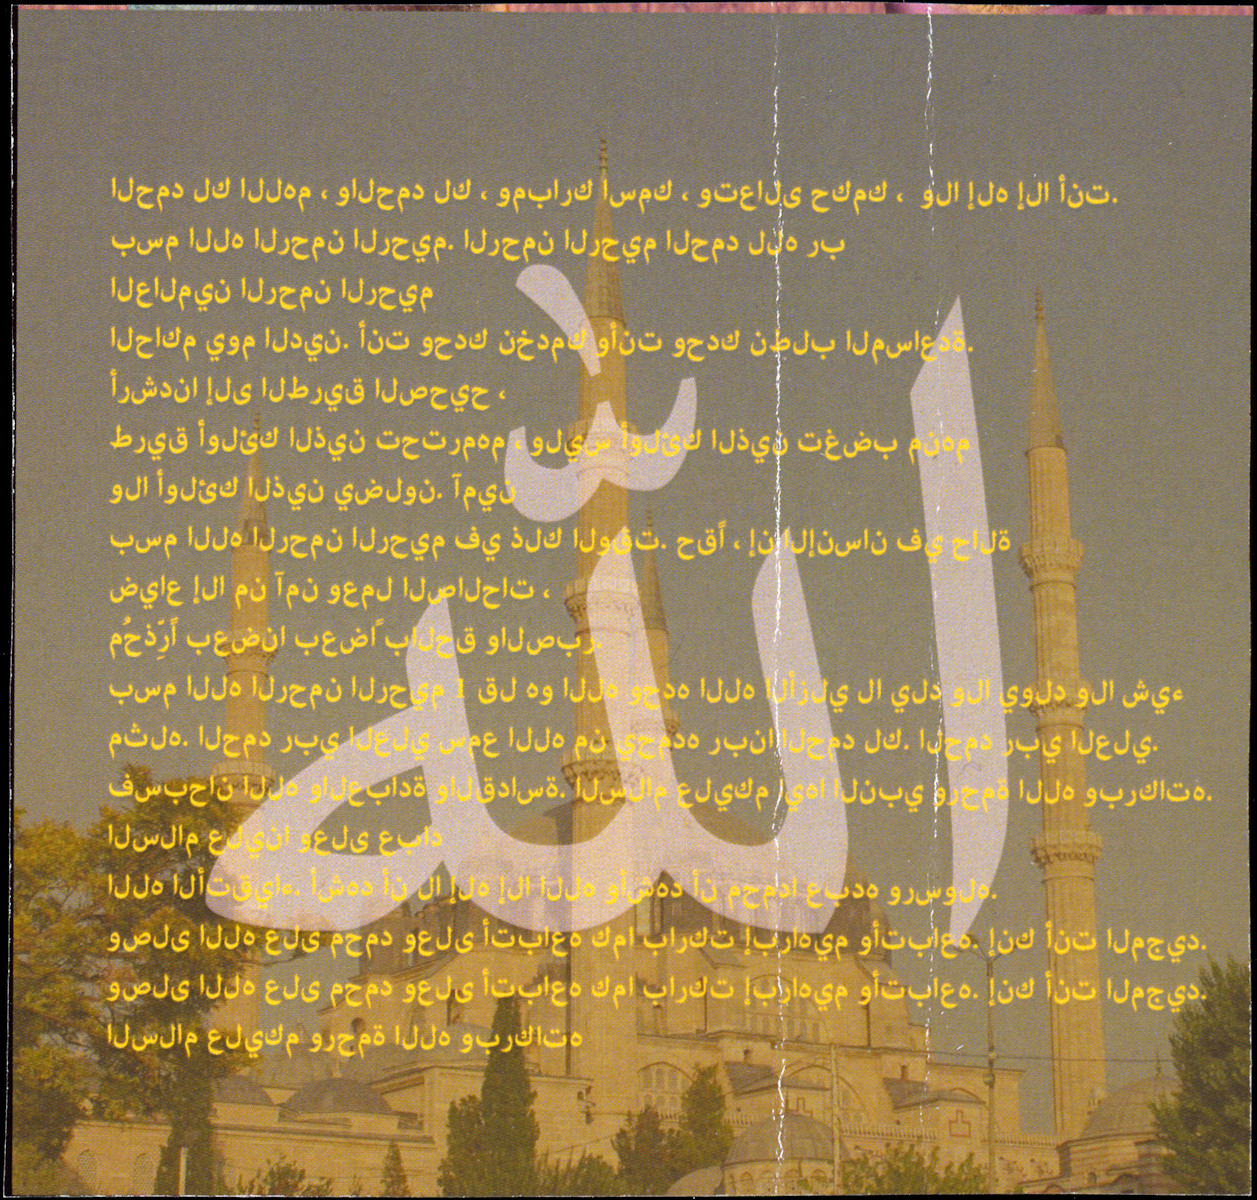 الحمد لك اللهم ، والحمد لك ، ومبارك أسمك ، وتعالى حكمك ، ولا إله إلا أنت.
بسم الله الرحمن الرحيم. الرحمن الرحيم الحمد لله رب
العالمين الرحمن الرحيم
الحاكم يوم الدين. أنت وحدك نخدمك وأنت وحدك نطلب المساعدة.
أرشدنا إلى الطريق الصحيح ،
طريق أولئك الذين تحترمهم ، وليس أولئك الذين تغضب منهم
ولا أولئك الذين يضلون. آمين
بسم الله الرحمن الرحيم في ذلك الوقت. حقاً ، إن الإنسان في حالة
ضياع إلا من آمن وعمل الصالحات ،
مُحذِّرًا بعضنا بعضاً بالحق والصبر.
بسم الله الرحمن الرحيم 1 قل هو الله وحده الله الأزلي لا يلد ولا يولد ولا شيء
مثله. الحمد ربي العلي سمع الله من يحمده ربنا الحمد لك. الحمد ربي العلي.
فسبحان الله والعبادة والقداسة. السلام عليكم ايها النبي ورحمة الله وبركاته.
السلام علينا وعلى عباد
الله الأتقياء. أشهد أن لا إله إلا الله وأشهد أن محمدا عبده ورسوله.
وصلى الله على محمد وعلى أتباعه كما باركت إبراهيم وأتباعه. إنك أنت المجيد.
وصلى الله على محمد وعلى أتباعه كما باركت إبراهيم وأتباعه. إنك أنت المجيد.
السلام عليكم ورحمة الله وبركاته
الله